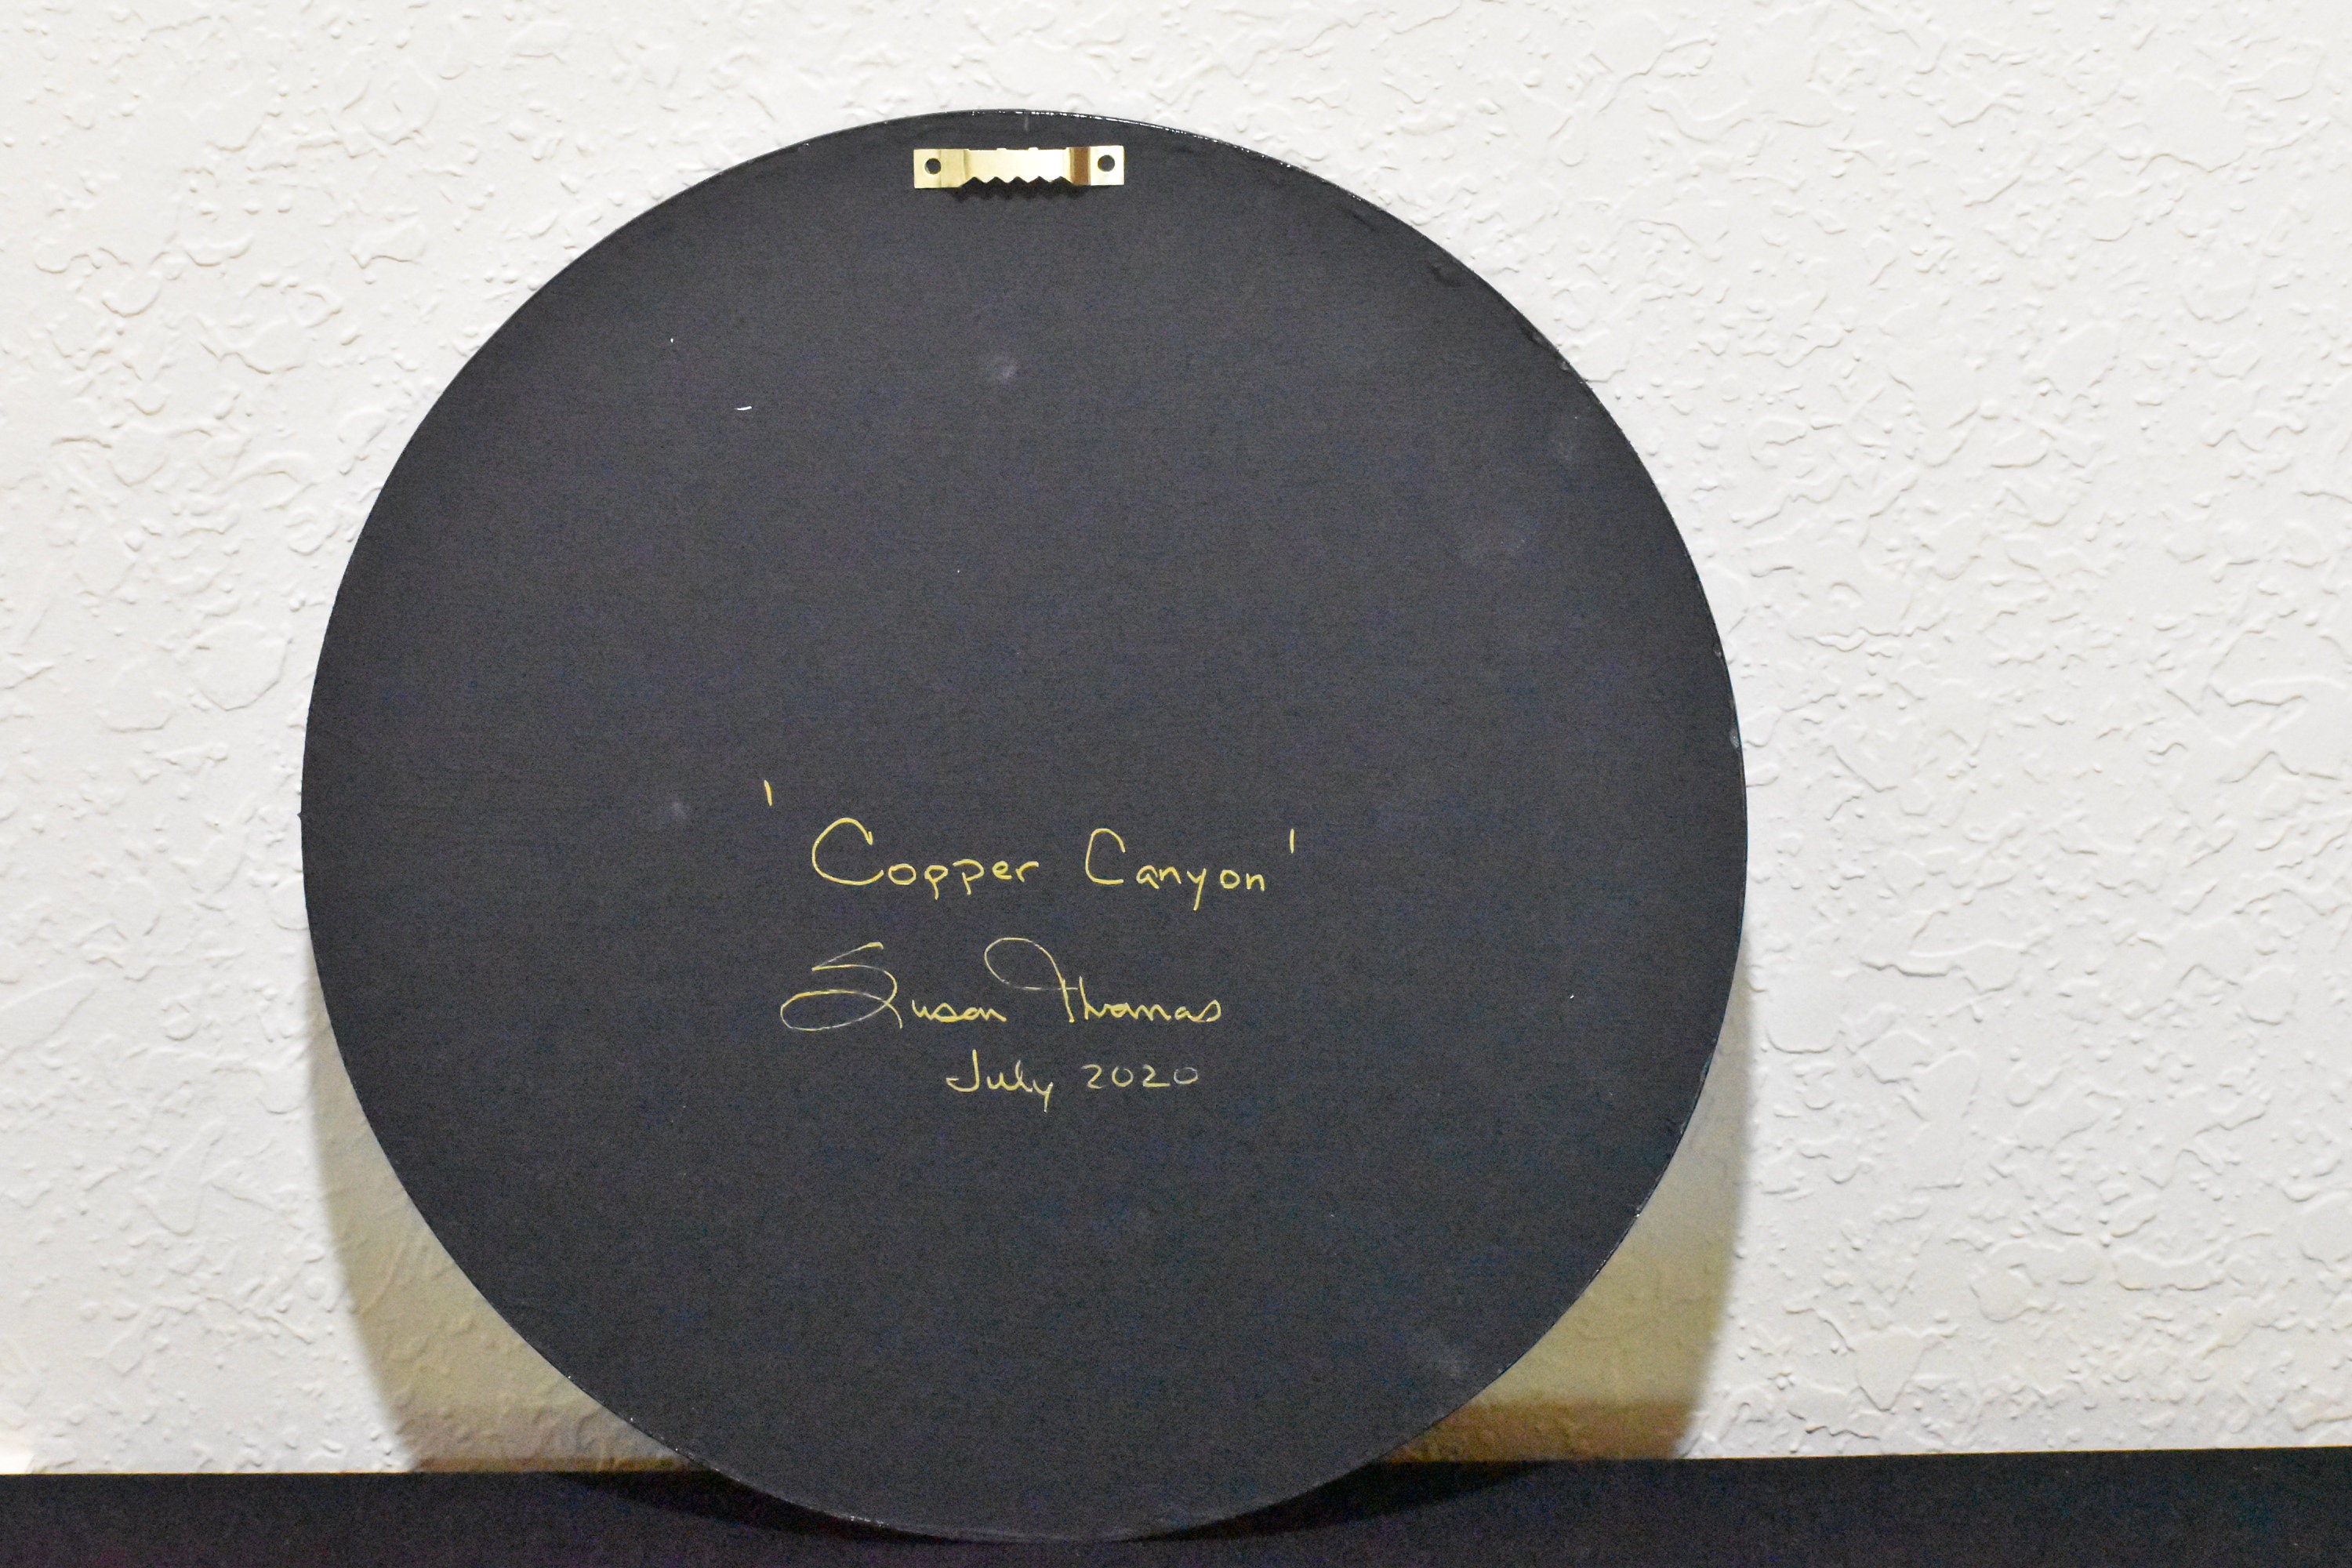 'Copper Canyon'
Susan Thomas
July 2020